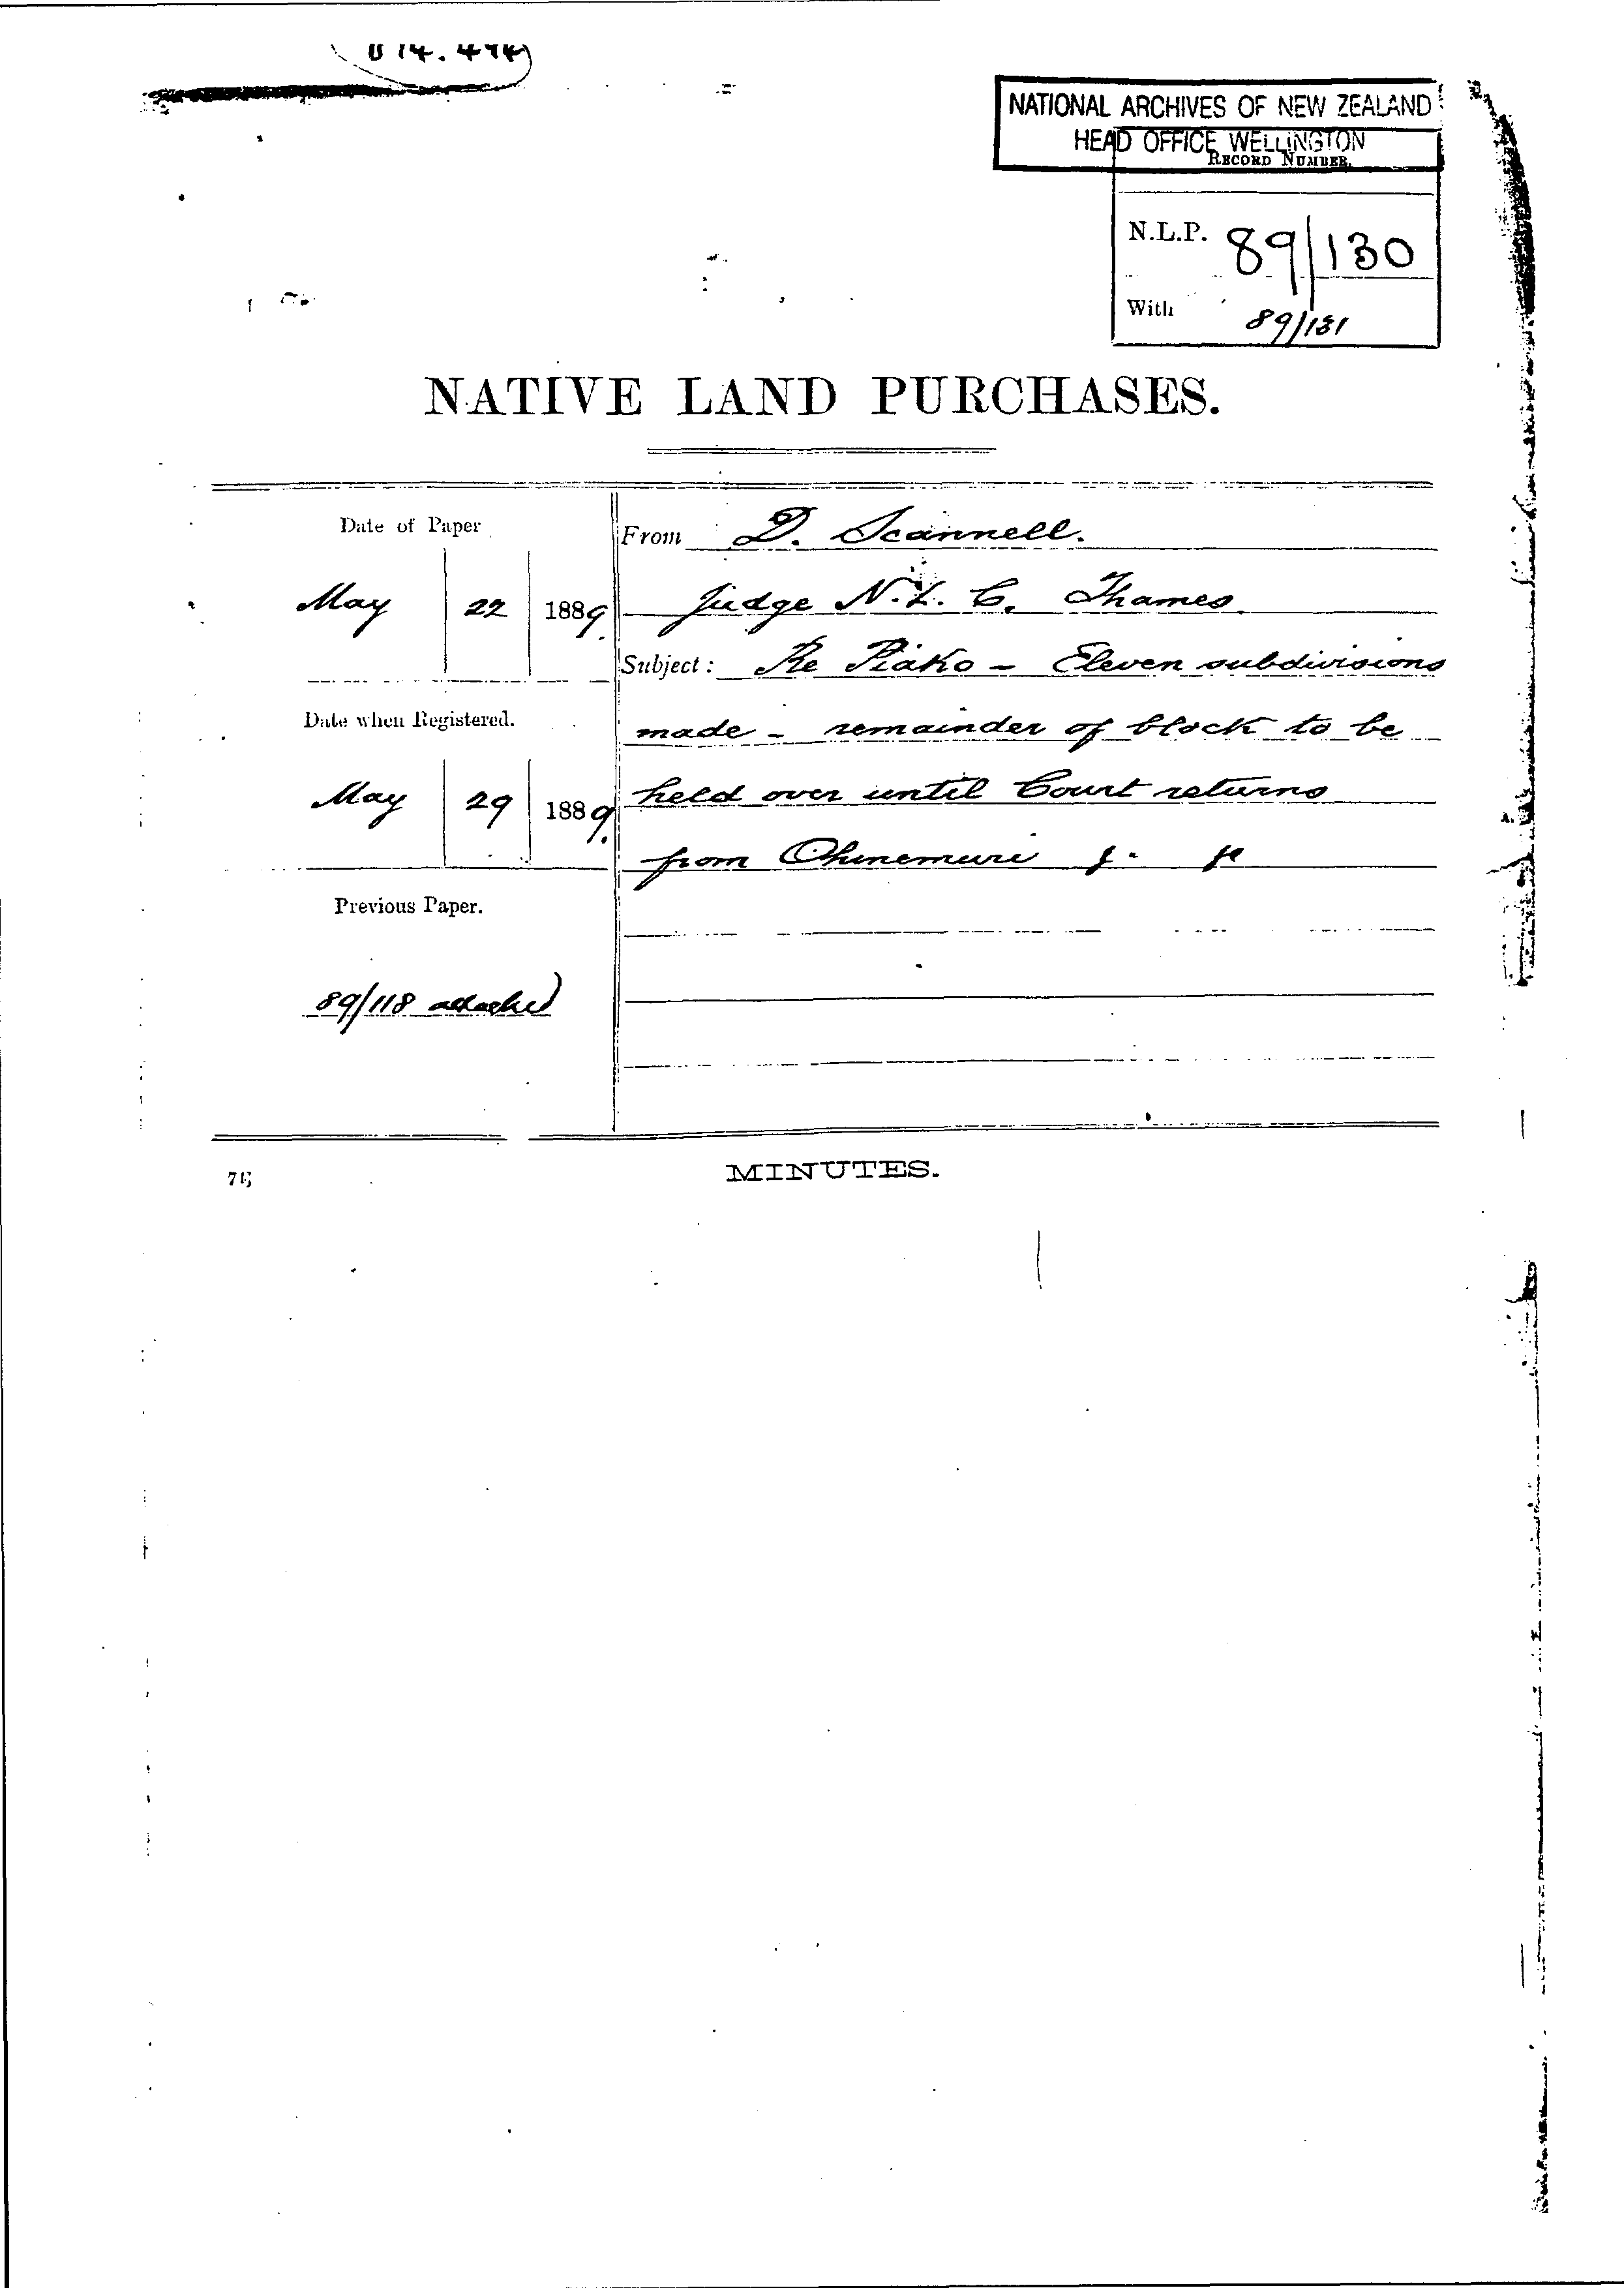 NATIONAL ARCHIVES OF NEW ZEALAND
HEAD OFFICE WELLINGTON
RECORD NUMBER.
N.L.P. 89/130
With 89/131
NATIVE LAND PURCHASES.
Date of Paper
May 22 1889.
From D. Scannell.
Judge N.L.C. Thames
Subject: Re Piako - Eleven subdivisions
made - remainder of block to be
held over until Court returns
from Ohinemuri
Date when Registered.
May 29 1889.
Previous Paper.
89/118 attached
MINUTES.